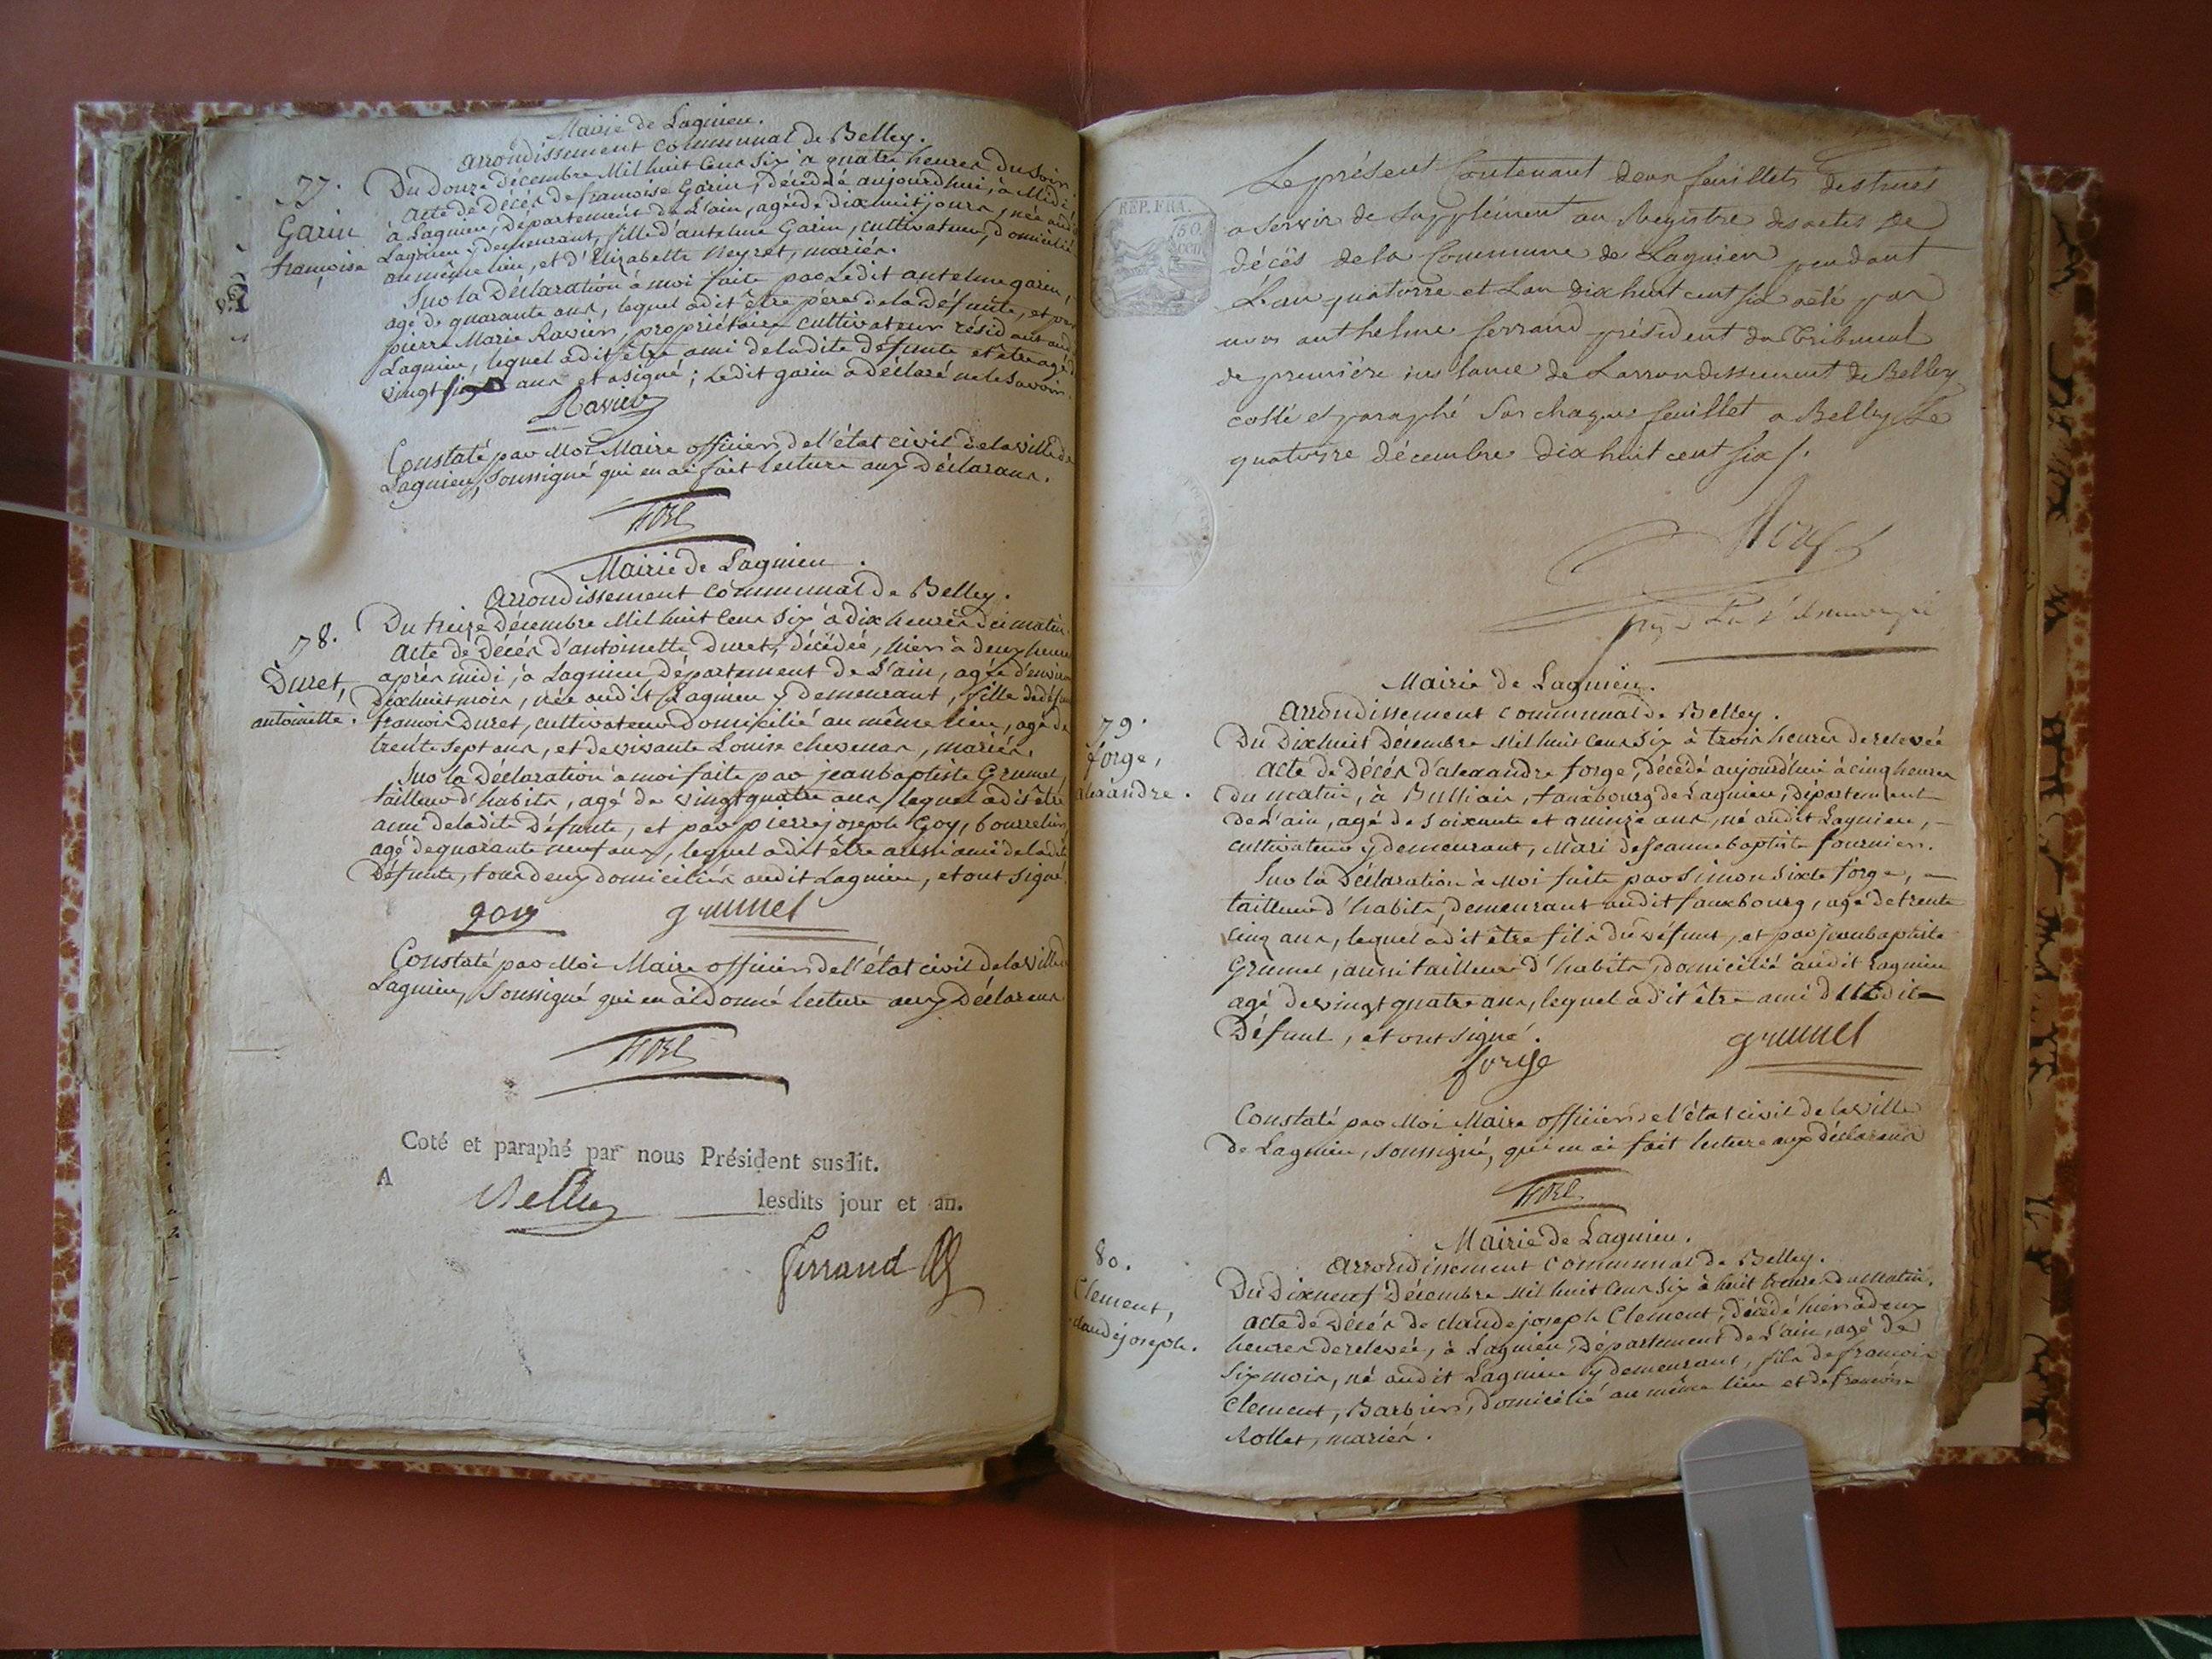 Mairie de Lagnieu.
arrondissement communal de Belley.
77.
Garin
françoise
Du Douze décembre Mil huit Cens Six à quatre heures Du soir
acte de Décés de françoise Garin, décédée aujourdhui, à Midi
à Lagnieu, Département de L'ain, agée de dixhuit jours, née audit
Lagnieu y demeurant, fille d'antelme Garin, cultivateur, domicilié
au même lieu, et d'Elizabette Neyret, mariés.
Sur la Déclaration à moi faite par Ledit antelme garin,
agé de quarante ans, lequel a dit être père de la défunte, et par
pierre Marie Ravier, propriétaire cultivateur résidant audit
Lagnieu, lequel a dit être ami de ladite défunte et être agé de
vingt ans et a signé; Ledit garin a déclaré ne le savoir.
Ravier
Constaté par Moi Maire officier de l'état civil de la ville de
Lagnieu, soussigné qui en ai fait lecture aux Déclarans.
Mairie de Lagnieu.
arrondissement communal de Belley.
78.
Duret,
antoinette.
Du treize Décembre Mil huit Cens Six à dix heures du matin
acte de Décés d'antoinette Duret, décédée, hier à deux heures
après midi, à Lagnieu Département de L'ain, agée d'environ
Dixhuit mois, née audit Lagnieu y demeurant, fille de défunt
francois Duret, cultivateur Domicilié au même lieu, agé de
trente sept ans, et de vivante Louise chesenas, mariés.
Sur la Déclaration à moi faite par jean baptiste Grumel,
tailleur d'habits, agé de vingt quatre ans, lequel a dit être
ami de ladite Défunte, et par pierre joseph Goy, bourrelier,
agé de quarante neuf ans, lequel a dit être aussi ami de ladite
Défunte, tous deux domiciliés audit Lagnieu, et ont signé.
goy grumel
Constaté par Moi Maire officier de l'état civil de la ville de
Lagnieu, soussigné qui en ai donné lecture aux Déclarans
Coté et paraphé par nous Président susdit.
A Belley lesdits jour et an.
Ferrand
REP. FRA.
Le présent Contenant deux feuillets destinés
a servir de Supplément au Registre des actes de
décès de la Commune de Lagnieu pendant
L'an quatorze et Lan dix huit cent six a été par
nous anthelme ferrand président du Tribunal
de première instance de Larrondissement de Belley
cotté et paraphé Sur chaque feuillet a Belley Le
quatorze décembre dix huit cent six /.
Mairie de Lagnieu.
arrondissement communal de Belley.
79.
forge,
alexandre.
Du Dixhuit Décembre Mil huit Cens Six à trois heures de relevée
acte de Décés d'alexandre forge, décédé aujourd'hui à cinq heures
du matin, à Bulliair, fauxbourg de Lagnieu, département
de L'ain, agé de soixante et quinze ans, né audit Lagnieu,
cultivateur y demeurant, Mari de Jeanne baptiste fournier.
Sur la Déclaration à Moi faite par Simon Sixte forge,
tailleur d'habits, demeurant audit fauxbourg, agé de trente
cinq ans, lequel a dit être fils du défunt, et par jean baptiste
Grumel, aussi tailleur d'habits, domicilié audit Lagnieu
agé de vingt quatre ans, lequel a dit être ami dudit
Défunt, et ont signé.
forge grumel
Constaté par Moi Maire officier de l'état civil de la ville
de Lagnieu, soussigné, qui en ai fait lecture aux déclarans
Mairie de Lagnieu.
arrondissement communal de Belley.
80.
Clement,
claude joseph.
Du Dixneuf Décembre Mil huit Cens Six à huit heures du matin.
acte de Décés de claude joseph Clement, décédé hier à deux
heures de relevée, à Lagnieu, Département de L'ain, agé de
six mois, né audit Lagnieu y demeurant, fils de françois
Clement, Barbier, domicilié au même lieu et de françoise
Rollet, mariés.